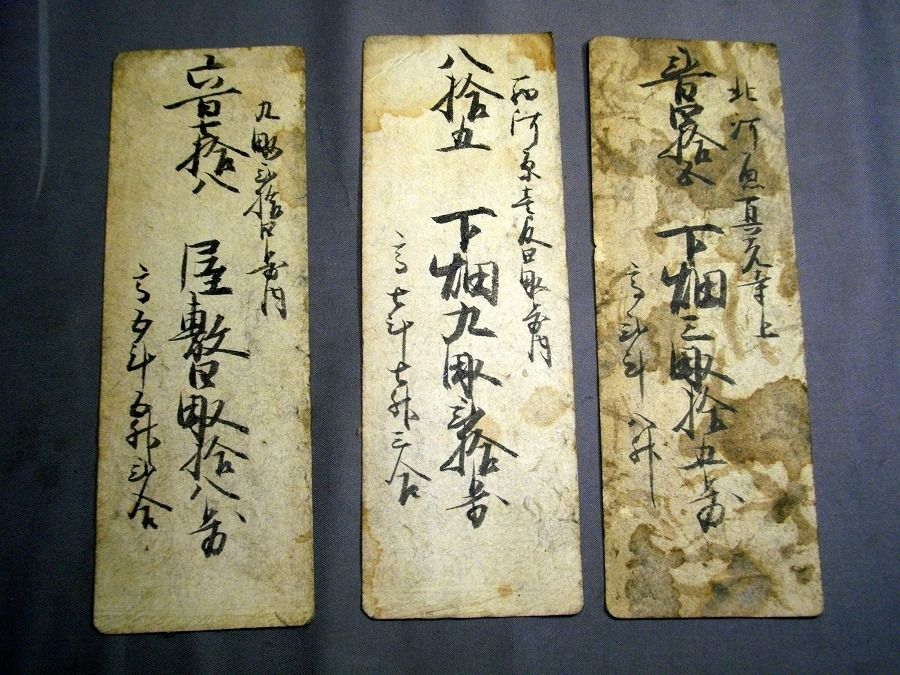 北河原真光寺上
弐百四拾五　下畑三畝拾五歩
高弐斗八升
西河原壱反四畝歩内
八拾五　下畑九畝弐拾歩
高七斗七升三合
九畝弐拾四歩内
六百七拾八　屋敷四畝拾八歩
高五斗五升弐合